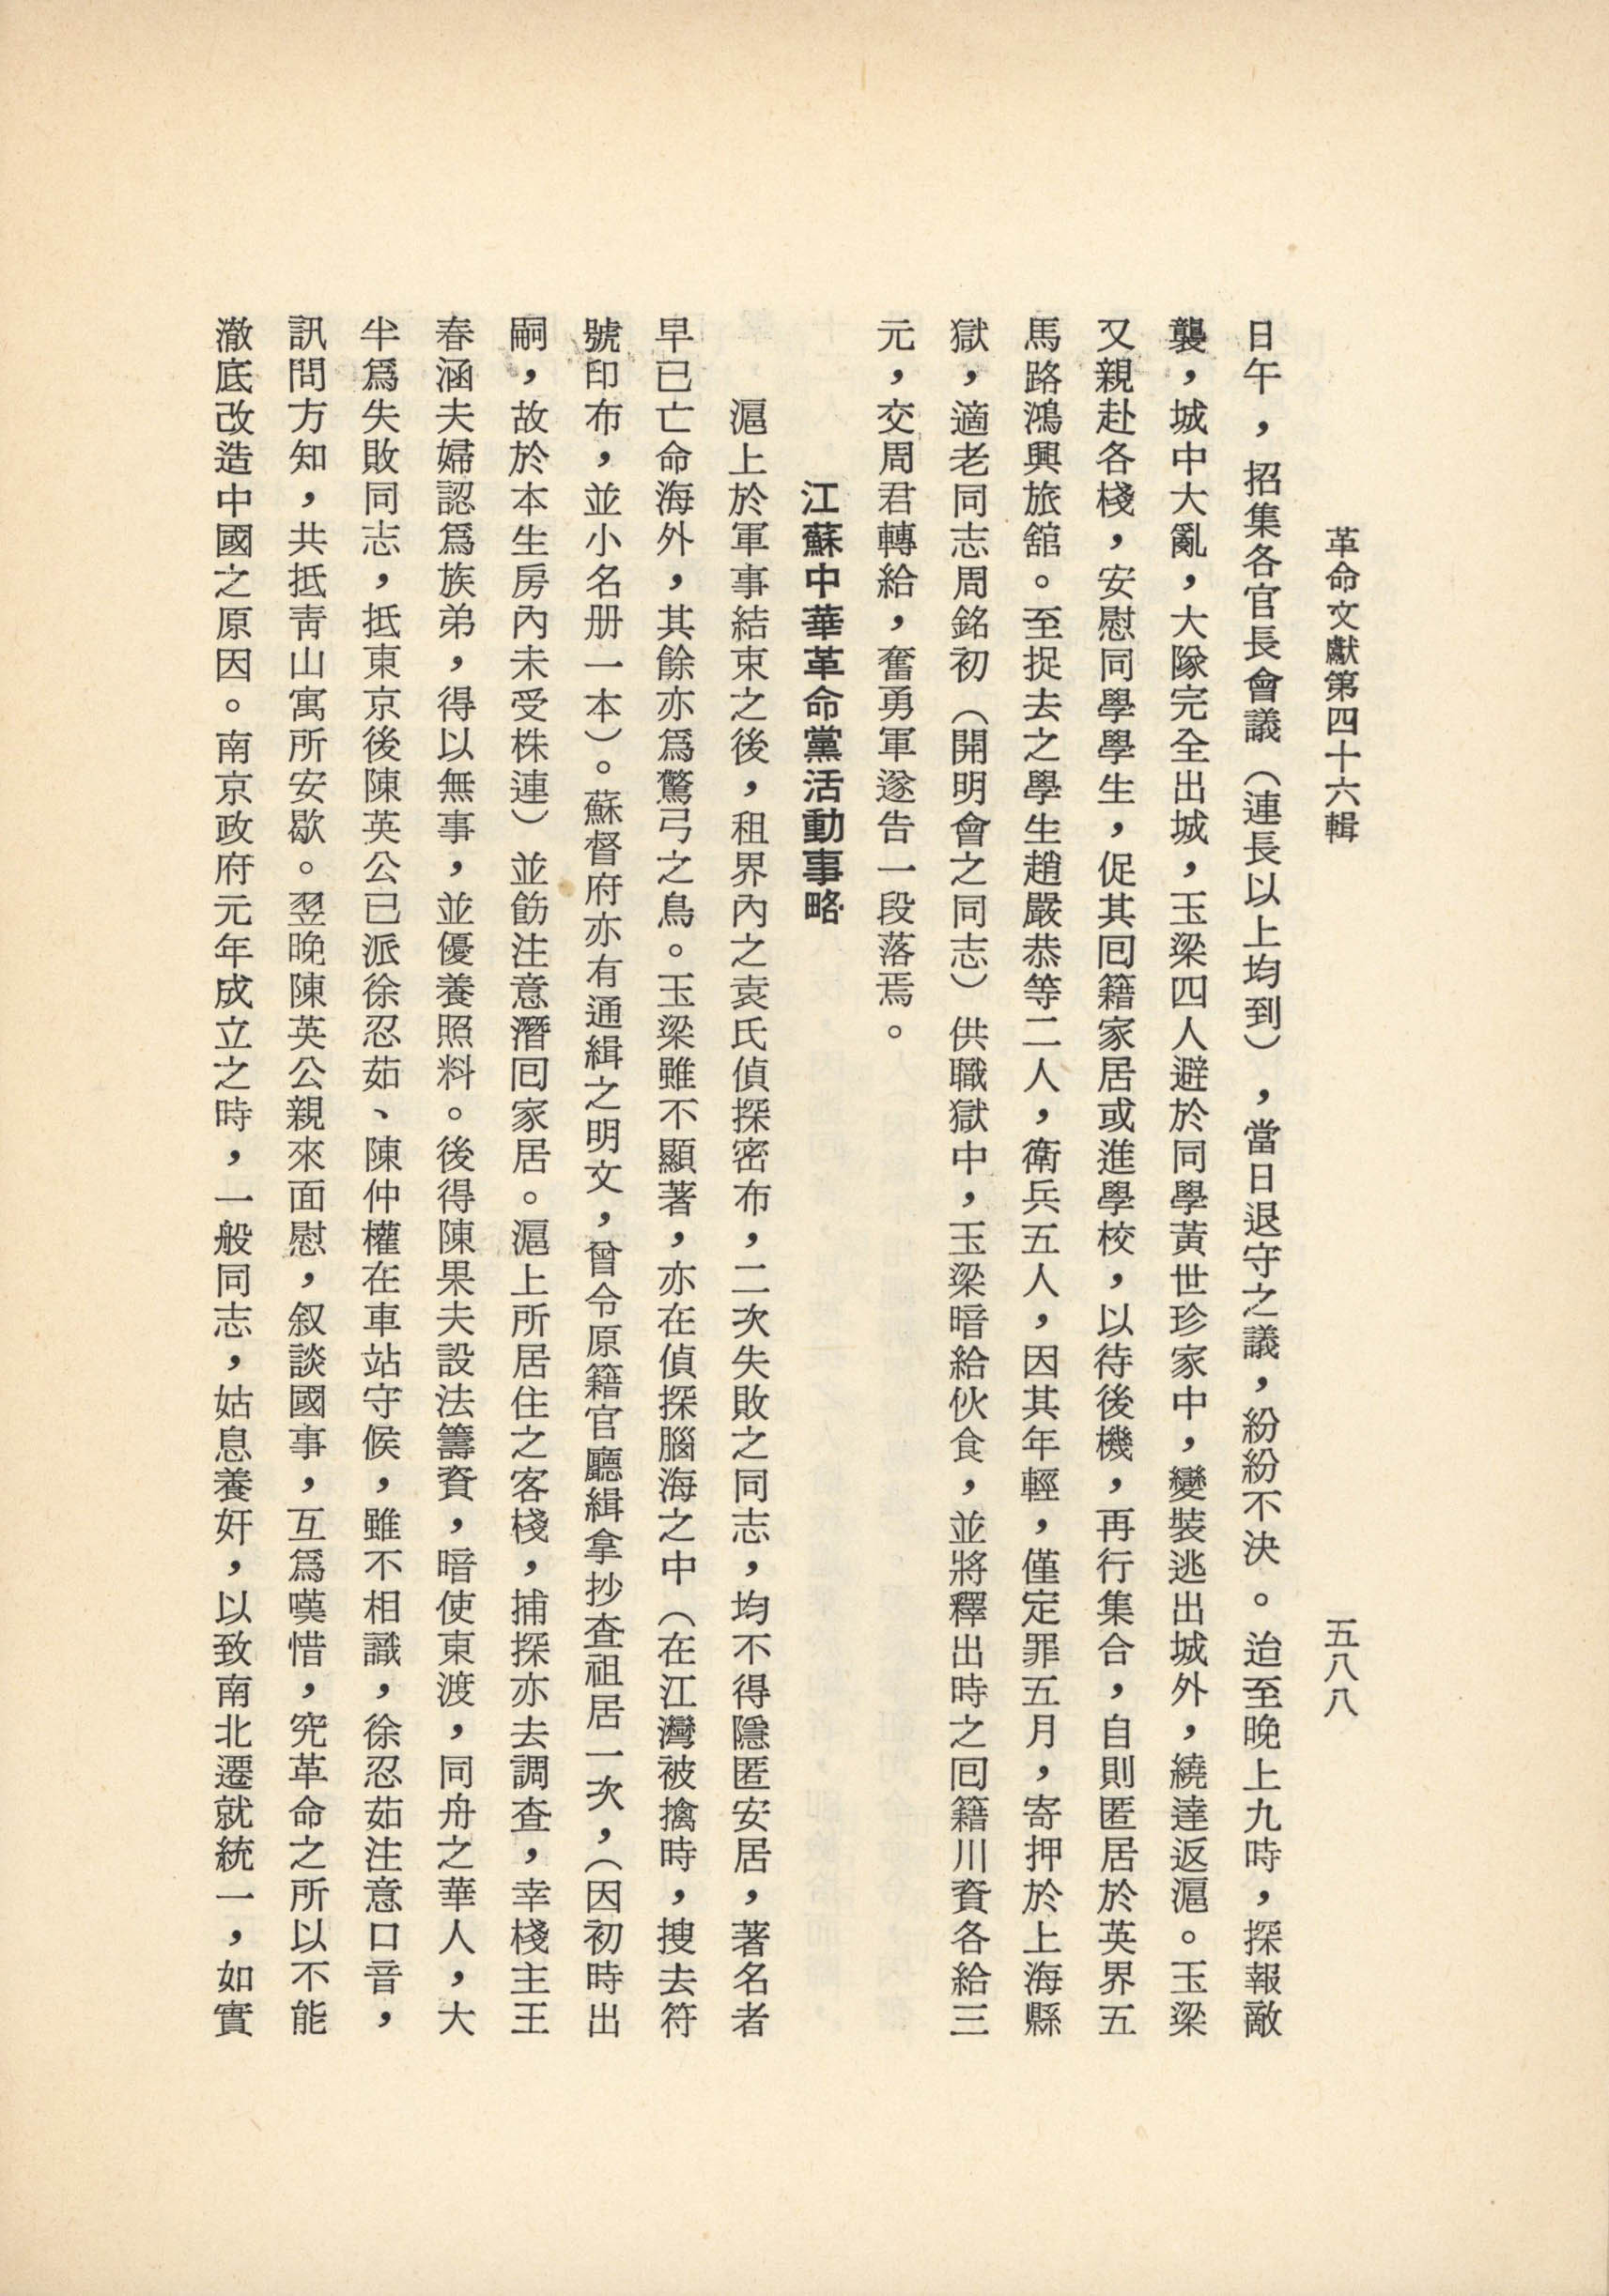 革命文獻第四十六輯
五八八
日午，招集各官長會議（連長以上均到），當日退守之議，紛紛不決。迨至晚上九時，探報敵
襲，城中大亂，大隊完全出城，玉梁四人避於同學黃世珍家中，變裝逃出城外，繞達返滬。玉梁
又親赴各棧，安慰同學學生，促其囘籍家居或進學校，以待後機，再行集合，自則匿居於英界五
馬路鴻興旅舘。至捉去之學生趙嚴恭等二人，衛兵五人，因其年輕，僅定罪五月，寄押於上海縣
獄，適老同志周銘初（開明會之同志）供職獄中，玉梁暗給伙食，並將釋出時之囘籍川資各給三
元，交周君轉給，奮勇軍遂告一段落焉。
江蘇中華革命黨活動事略
滬上於軍事結束之後，租界內之袁氏偵探密布，二次失敗之同志，均不得隱匿安居，著名者
早已亡命海外，其餘亦爲驚弓之鳥。玉梁雖不顯著，亦在偵探腦海之中（在江灣被擒時，搜去符
號印布，並小名册一本）。蘇督府亦有通緝之明文，曾令原籍官廳緝拿抄查祖居一次，（因初時出
嗣，故於本生房內未受株連）並飭注意潛囘家居。滬上所居住之客棧，捕探亦去調查，幸棧主王
春涵夫婦認爲族弟，得以無事，並優養照料。後得陳果夫設法籌資，暗使東渡，同舟之華人，大
半爲失敗同志，抵東京後陳英公已派徐忍茹、陳仲權在車站守候，雖不相識，徐忍茹注意口音，
訊問方知，共抵靑山寓所安歇。翌晚陳英公親來面慰，叙談國事，互爲嘆惜，究革命之所以不能
澈底改造中國之原因。南京政府元年成立之時，一般同志，姑息養奸，以致南北遷就統一，如實